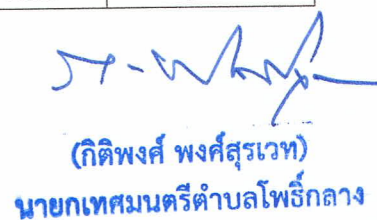 (กิติพงศ์ พงศ์สุรเวท)
นายกเทศมนตรีตำบลโพธิ์กลาง